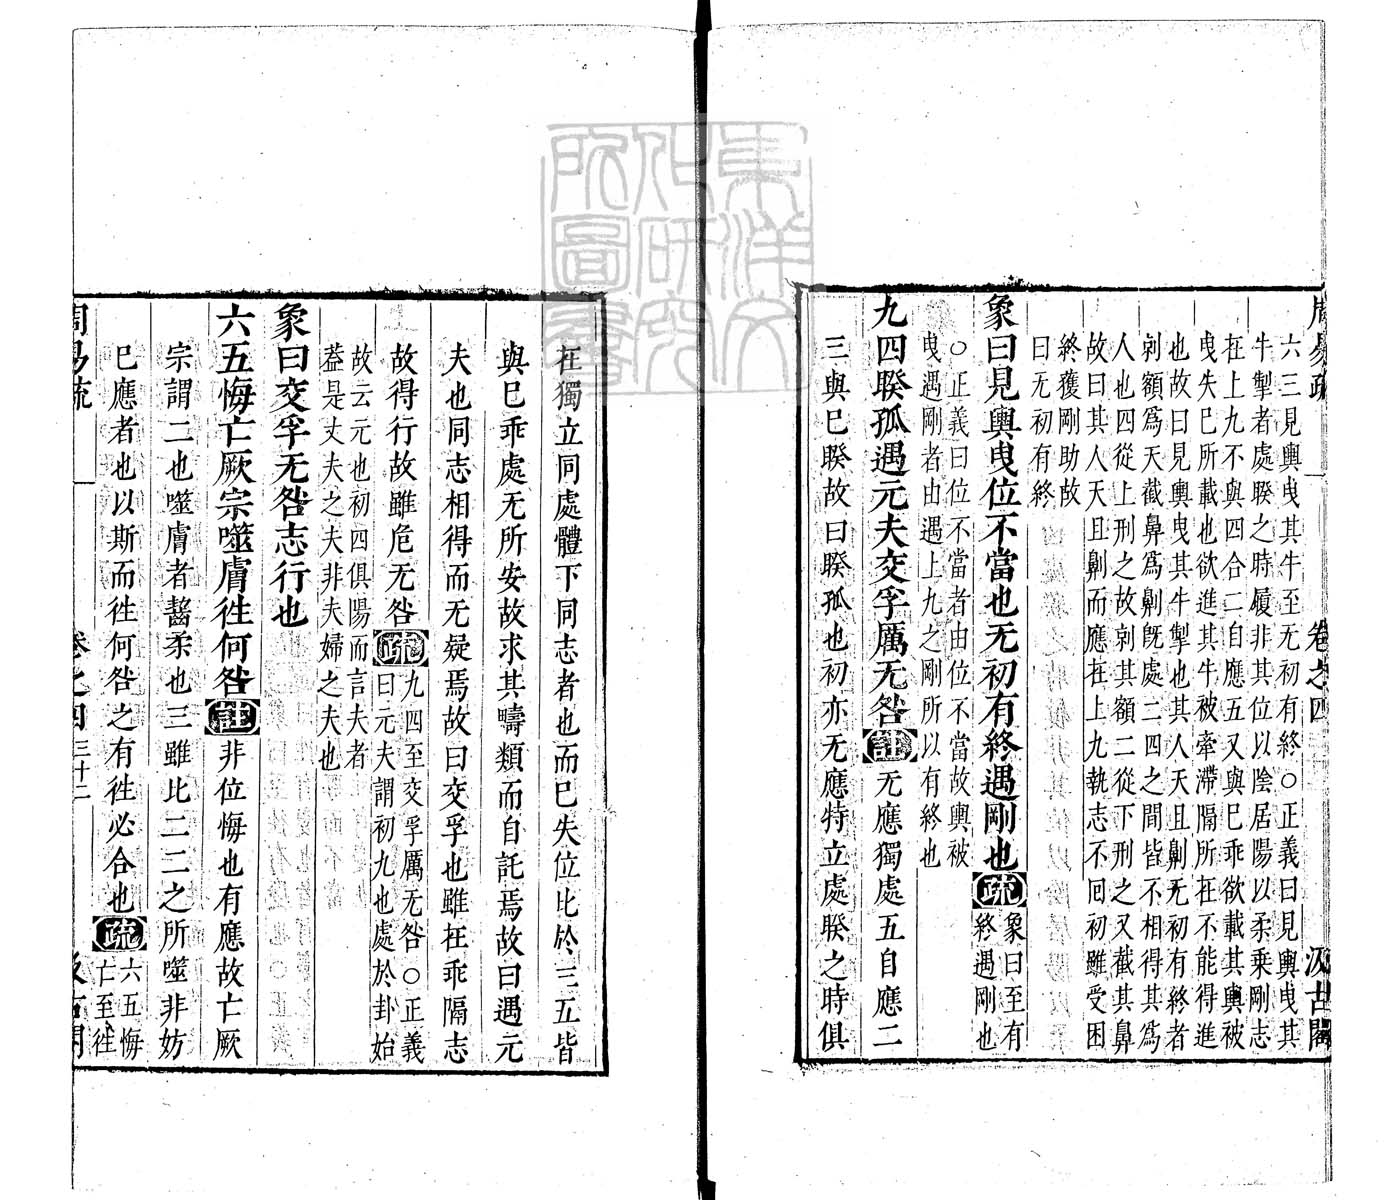 周易疏 卷之四 汲古閣
六三見輿曳其牛至无初有終○正義曰見輿曳其
牛掣者處睽之時履非其位以陰居陽以柔乘剛志
在上九不與四合二自應五又與巳乖欲載其輿被
曳失巳所載也欲進其牛被牽滯隔所在不能得進
也故曰見輿曳其牛掣也其人天且劓无初有終者
剠額爲天截鼻爲劓旣處二四之間皆不相得其爲
人也四從上刑之故剠其額二從下刑之又截其鼻
故曰其人天且劓而應在上九執志不囘初雖受困
終獲剛助故
曰无初有終
象曰見輿曳位不當也无初有終遇剛也疏象曰至有
終遇剛也
○正義曰位不當者由位不當故輿被
曳遇剛者由遇上九之剛所以有終也
九四睽孤遇元夫交孚厲无咎註无應獨處五自應二
三與巳睽故曰睽孤也初亦无應特立處睽之時俱
在獨立同處體下同志者也而巳失位比於三五皆
與巳乖處无所安故求其疇類而自託焉故曰遇元
夫也同志相得而无疑焉故曰交孚也雖在乖隔志
故得行故雖危无咎疏九四至交孚厲无咎○正義
曰元夫謂初九也處於卦始
故云元也初四俱陽而言夫者
葢是丈夫之夫非夫婦之夫也
象曰交孚无咎志行也
六五悔亡厥宗噬膚徃何咎註非位悔也有應故亡厥
宗謂二也噬膚者齧柔也三雖比二二之所噬非妨
巳應者也以斯而徃何咎之有徃必合也疏六五悔
亡至徃
周易疏 卷之四 三十二 汲古閣